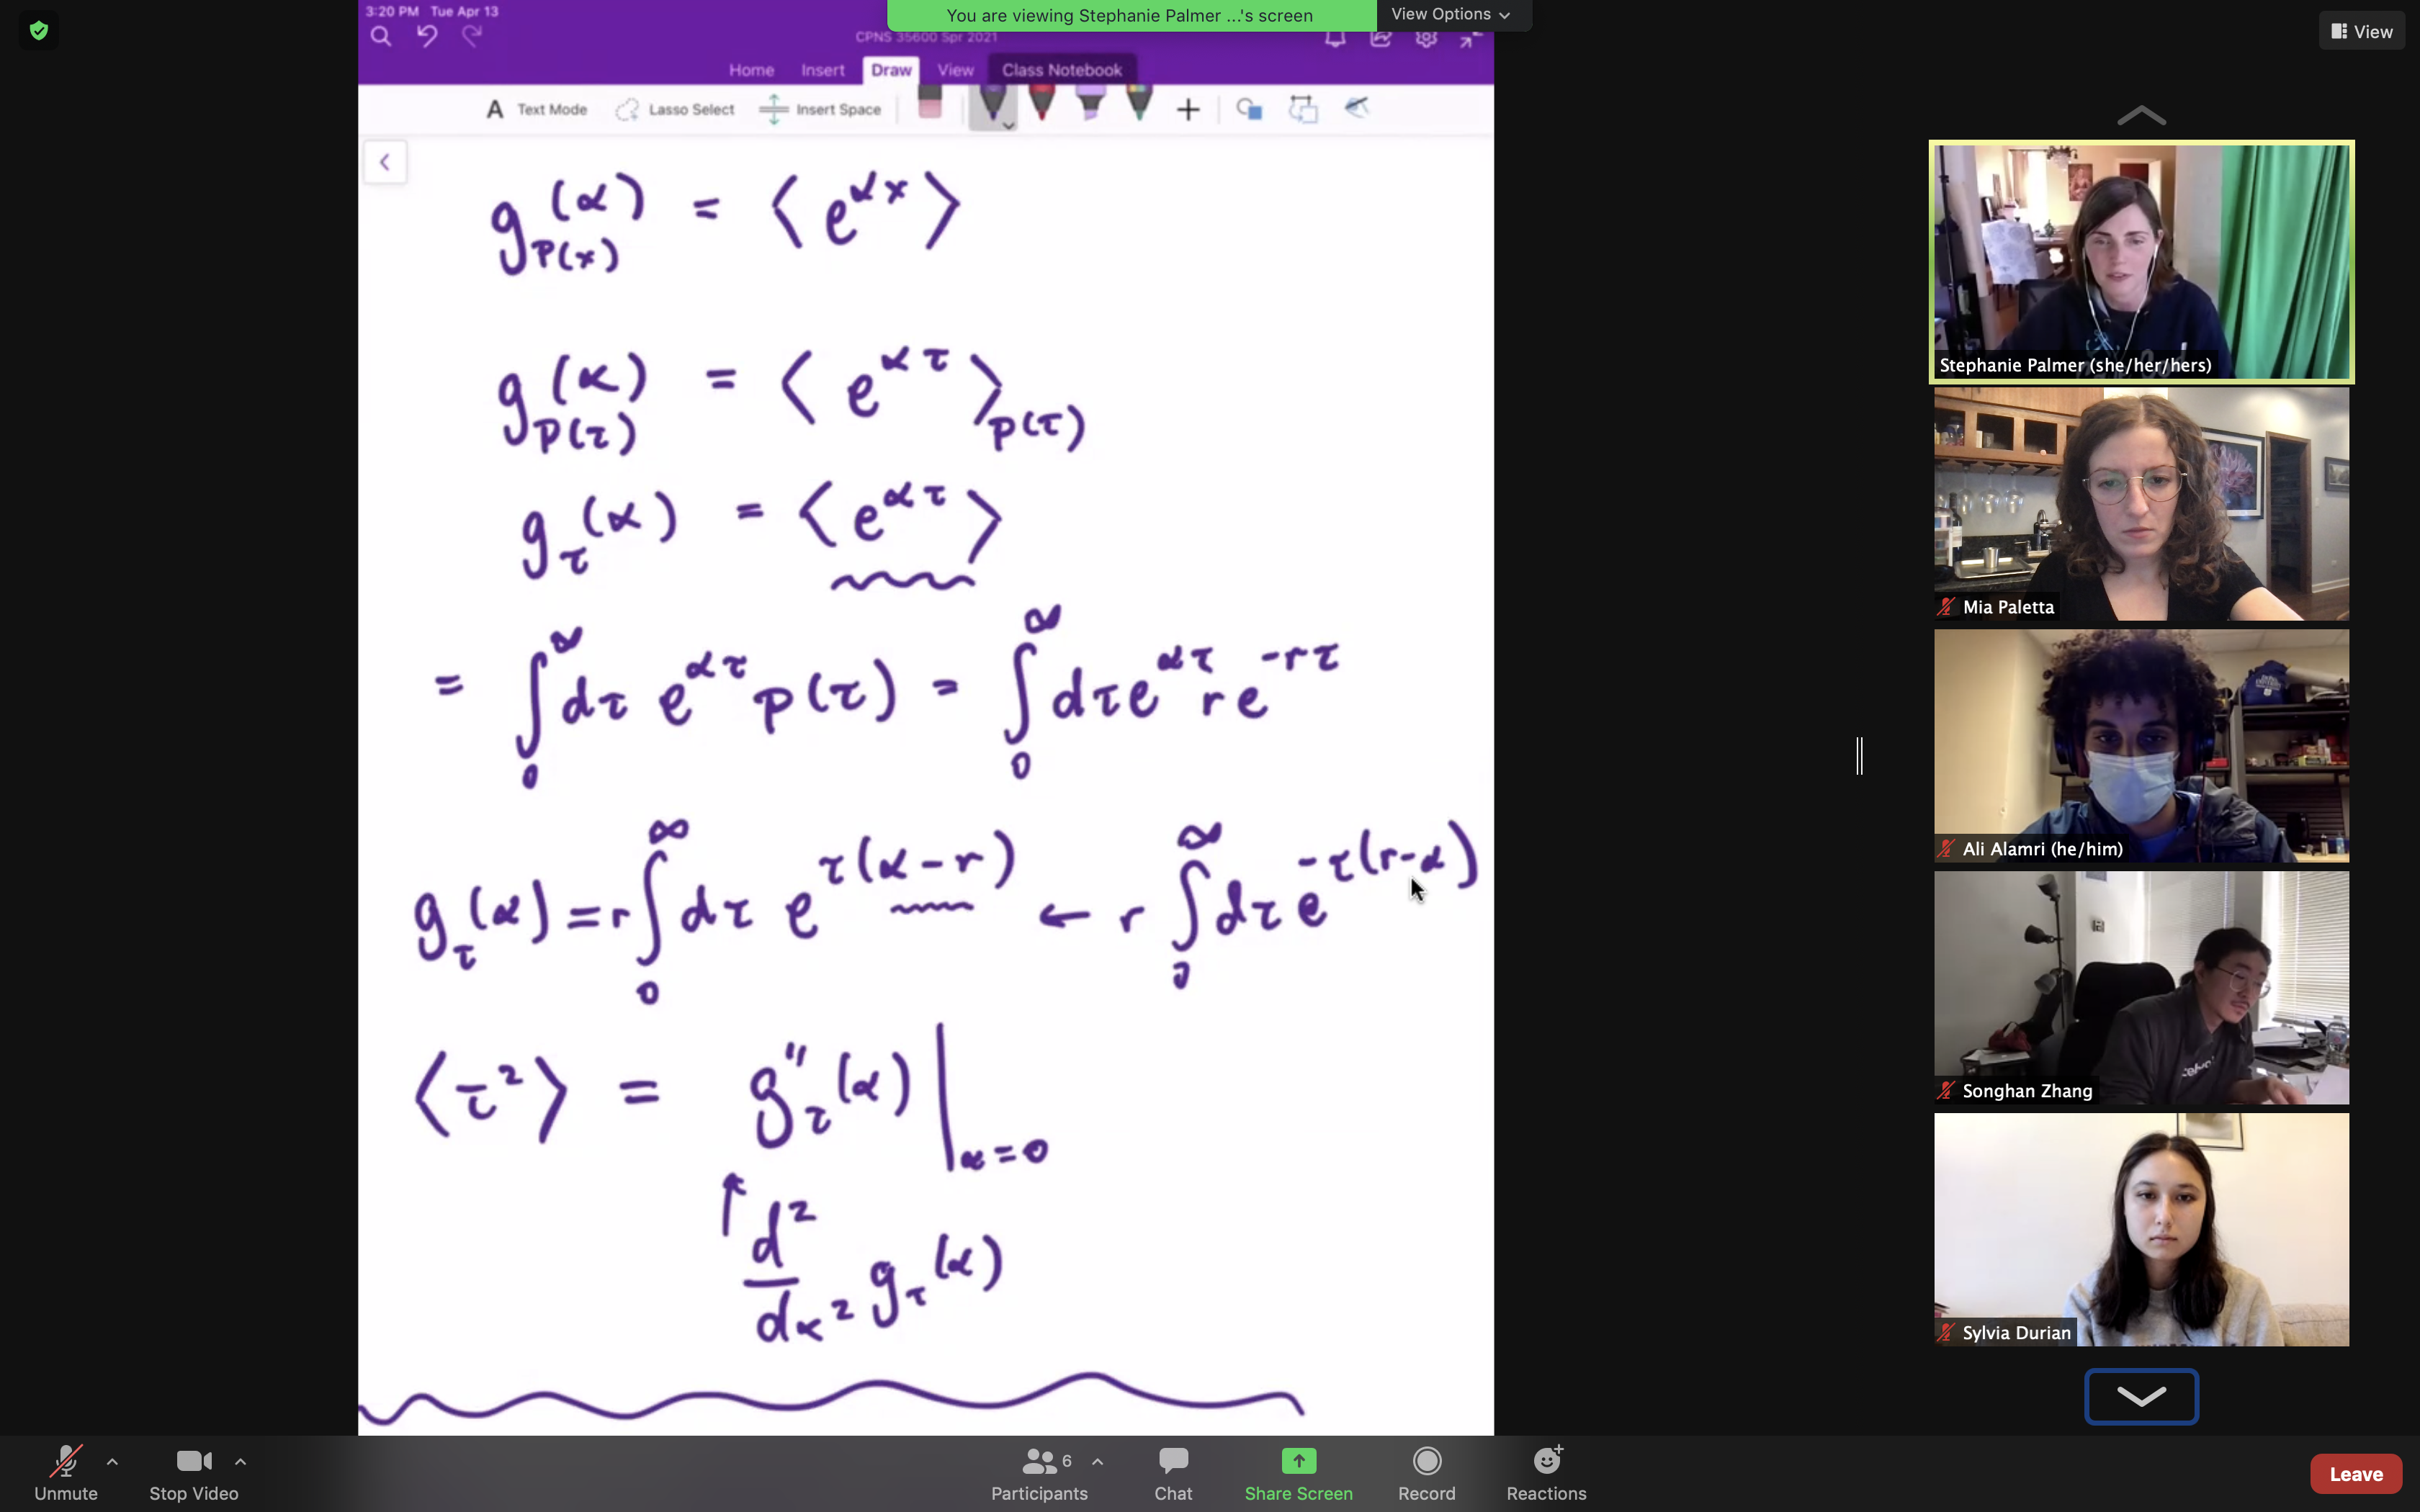 3:20 PM Tue Apr 13
You are viewing Stephanie Palmer ...'s screen
View Options
View
CPNS 35600 Spr 2021
Home Insert Draw View Class Notebook
A Text Mode Lasso Select Insert Space
g_{P(x)}(α) = ⟨e^{αx}⟩
g_{P(τ)}(α) = ⟨e^{ατ}⟩_{P(τ)}
g_τ(α) = ⟨e^{ατ}⟩
= ∫_0^∞ dτ e^{ατ} p(τ) = ∫_0^∞ dτ e^{ατ} r e^{-rτ}
g_τ(α) = r ∫_0^∞ dτ e^{τ(α-r)} ← r ∫_0^∞ dτ e^{-τ(r-α)}
⟨τ²⟩ = g''_τ(α) |_{α=0}
↑ d²/dα² g_τ(α)
Stephanie Palmer (she/her/hers)
Mia Paletta
Ali Alamri (he/him)
Songhan Zhang
Sylvia Durian
Unmute
Stop Video
6
Participants
Chat
Share Screen
Record
Reactions
Leave